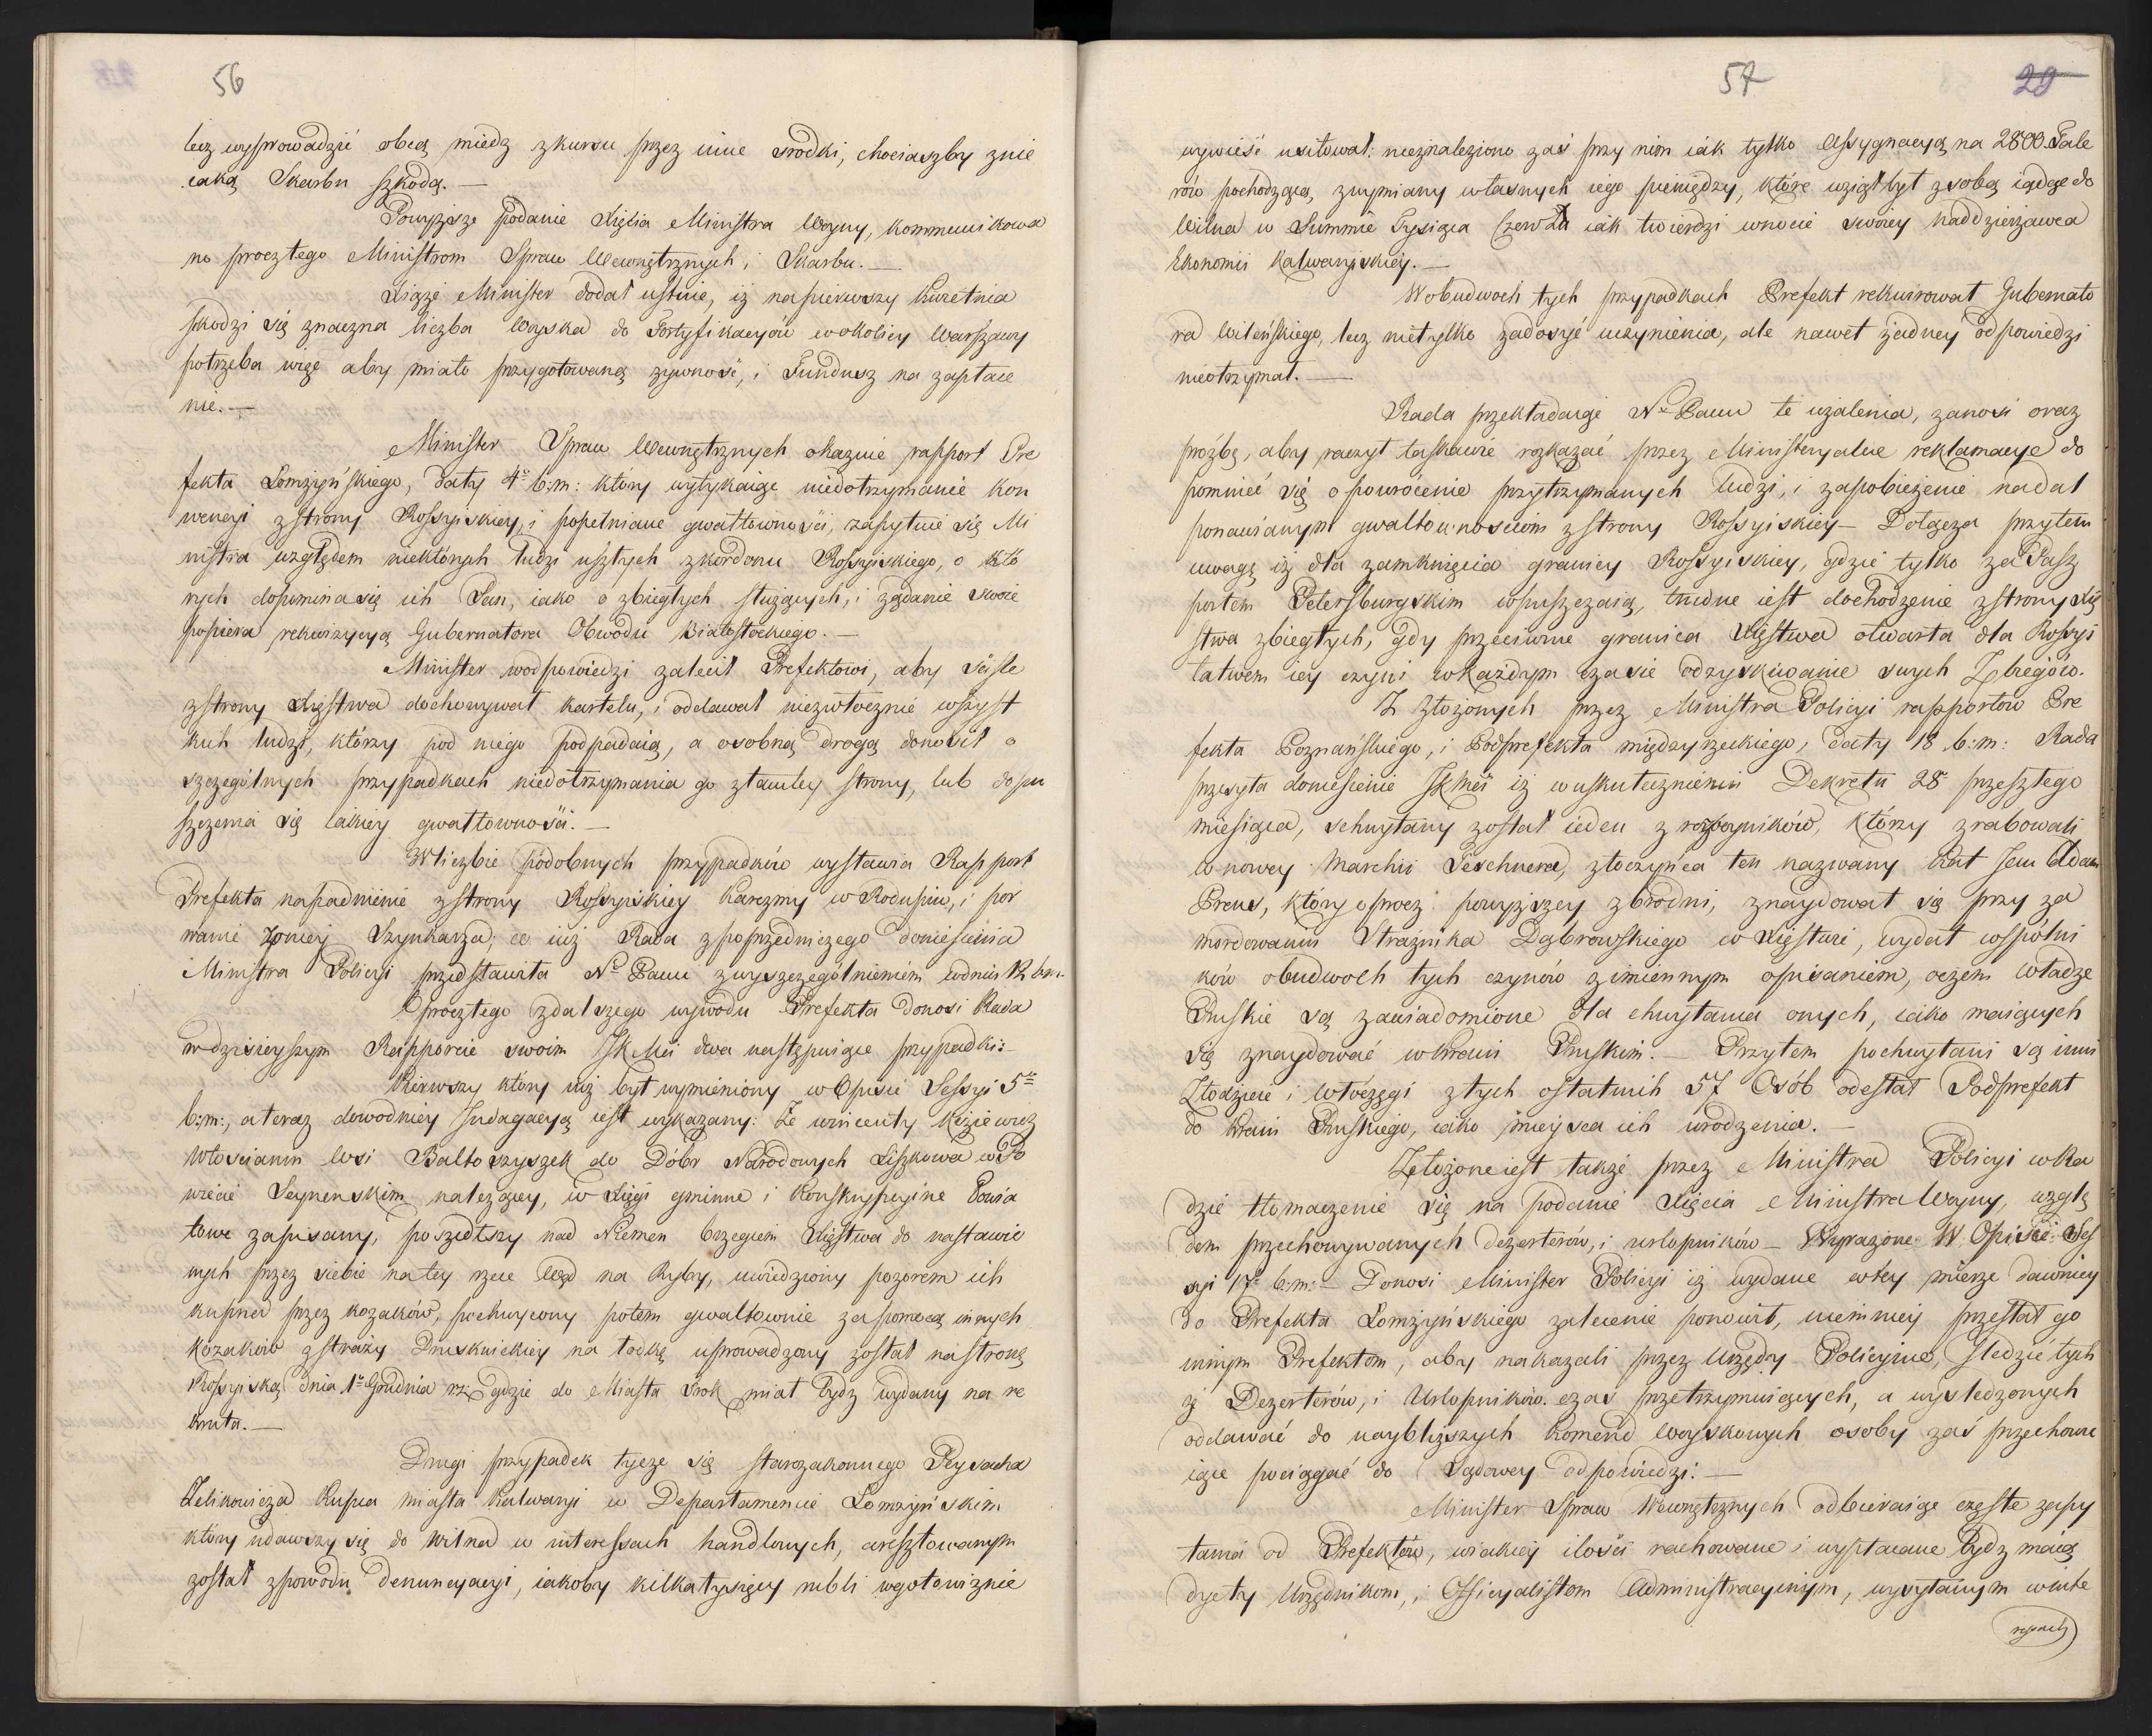 56
lecz wyprowadzić obcą miedź z kursu przez inne srodki, chociaszby z nie
iaką Skarbu szkodą. —
Powyższe podanie Xięcia Ministra Woyny, kommunikowa
no procz tego Ministrom Spraw Wewnętrznych i Skarbu. —
Xiążę Minister dodał ustnie, iż na pierwszy Kwietnia
schodzi się znaczna liczba Woyska do Fortyfikacyów w okolicy Warszawy
potrzeba więc aby miało przygotowaną zywność, i Fundusz na zapłace
nie. —
Minister Spraw Wewnętrznych okazuie rapport Pre
fekta Łomżyńskiego, Daty 4º b: m: który wytykaiąc niedotrzymanie kon
wencyi z strony Rossyiskiey, i popełniane gwałtowności, zapytuie się Mi
nistra względem niektórych ludzi uszłych z kordonu Rossyiskiego, o któ
rych dopomina się ich Pan, iako o zbiegłych służących, i żądanie swoie
popiera rekwizycyą Gubernatora Obwodu Białostockiego. —
Minister w odpowiedzi zalecił Prefektowi, aby ściśle
z strony Xięstwa dochowywał kartelu, i oddawał niezwłocznie wszyst
kich ludzi, którzy pod niego podpadaią, a osobną drogą donosił o
szczególnych przypadkach niedotrzymania go z tamtey strony, lub dopu
szczenia się iakiey gwałtowności. —
W liczbie podobnych przypadków wystawia Rapport
Prefekta napadnienie z strony Rossyiskiey Karczmy w Rodupiu, i por
wanie żoney Szynkarza, co iuż Rada z poprzedniczego doniesienia
Ministra Policyi przedstawiła N.º Panu z wyszczególnieniem w dniu 12 b. m.
Oprocz tego z dalszego wywodu Prefekta donosi Rada
w dzisieyszym Rapporcie swoim JKMci dwa następuiące przypadki:
Pierwszy który iuż był wymieniony w Opisie Sessyi 5º
b: m:, a teraz dowodniey Indagacyą iest wykazany: Że wincenty Kizie wicz
Włoscianin Wsi Baltoszyszek do Dóbr Narodowych Liszkowa w Po
wiecie Seynenskim należącey, w Xięgi gminne i Konskrypcyine Powia
towe zapisany, poszedłszy nad Niemen brzegiem Xięstwa do nastawio
nych przez siebie na tey rzece Węd na Ryby, uwiedziony pozorem ich
kupna przez kozaków, pochwycony potem gwałtownie za pomocą innych
kozaków z straży Druskuickiey na łodkę uprowadzony został na stronę
Rossyiską dnia 1º Grudnia rz: gdzie do Miasta Orok miał bydz wydany na re
kruta. —
Drugi przypadek tycze się starozakonnego Peysacha
Zelikowicza Kupca Miasta Kalwaryi w Departamencie Łomżyńskim
który udawszy się do Wilna w interessach handlowych, aresztowanym
został z powodu denuncyacyi, iakoby kilka tysięcy rubli w gotowiznie
57
29
wywieść usiłował: nieznaleziono zaś przy nim iak tylko Assygnacyą na 2800. Tale
rów pochodzącą, z wymiany własnych iego pieniędzy, które wziął był z sobą iadąc do
Wilna w Summie Tysiąca Czerw Zł iak twierdzi w nocie swoiey Naddzierżawca
Ekonomii Kalwaryiskiey. —
W obudwoch tych przypadkach Prefekt rekwirował Gubernato
ra Wileńskiego, lecz nie tylko zadosyć uczynienia, ale nawet żadney odpowiedzi
nieotrzymał. —
Rada przekładaiąc N.º Panu te użalenia, zanosi oraz
proźbę, aby raczył łaskawie rozkazać przez Ministeryalne reklamacye do
pomnieć się o powrócenie przytrzymanych ludzi, i zapobieżenie nadal
ponawianym gwałtownościom z strony Rossyiskiey — Dołącza przytem
uwagę iż dla zamknięcia granicy Rossyiskiey, gdzie tylko za Pasz
portem Petersburgskim wpuszczaią, trudne iest dochodzenie z strony Xię
stwa zbiegłych, gdy przeciwnie granica Xięstwa otwarta dla Rossyi
łatwem iey czyni w każdym czasie odzyskiwanie swych Zbiegów.
Z złożonych przez Ministra Policyi rapportów Pre
fekta Poznańskiego, i Podprefekta międzyrzeckiego, daty 18 b: m: Rada
przesyła doniesienie JKMci iż w uskutecznieniu Dekretu 28 przeszłego
miesiąca, schwytany został ieden z rozboyników, którzy zrabowali
w nowey Marchii Teschnera, złoczyńca ten nazwany Kat Jan Adam
Preus, który oprocz powyższey zbrodni, znaydował się przy za
mordowaniu Strażnika Dąbrowskiego w Xięstwie, wydał wspólni
ków obudwoch tych czynów z imiennym opisaniem, oczem władze
Pruskie są zawiadomione dla chwytania onych, iako maiących
się znaydować w kraiu Pruskim. — Przytem pochwytani są inni
Złodzieie i Włóczęgi z tych ostatnich 57 Osób odesłał Podprefekt
do kraiu Pruskiego, iako mieysca ich urodzenia. —
Złożone iest także przez Ministra Policyi w Ra
dzie tłomaczenie się na podanie Xięcia Ministra Woyny, wzglę
dem przechowywanych dezerterów, i urlopników — Wyrażone W Opisie Ses
syi 1º b: m: — Donosi Minister Policyi iż wydane w tey mierze dawniey
do Prefekta Łomżyńskiego zalecenie ponowił, niemniey przesłał go
innym Prefektom, aby nakazali przez Urzędy Policyine, sledzić tych
ż Dezerterów, i Urlopników czas przetrzymuiących, a wysledzonych
oddawać do naybliższych Komend Woyskowych osoby zaś przechowu
iące pociągać do Sądowey odpowiedzi. —
Minister Spraw Wewnętrznych odbieraiąc częste zapy
tania od Prefektów, w iakiey ilości rachowane i wypłacane bydz maią
dyety Urzędnikom, i Officyalistom Administracyinym, wysyłanym w inte
ressach